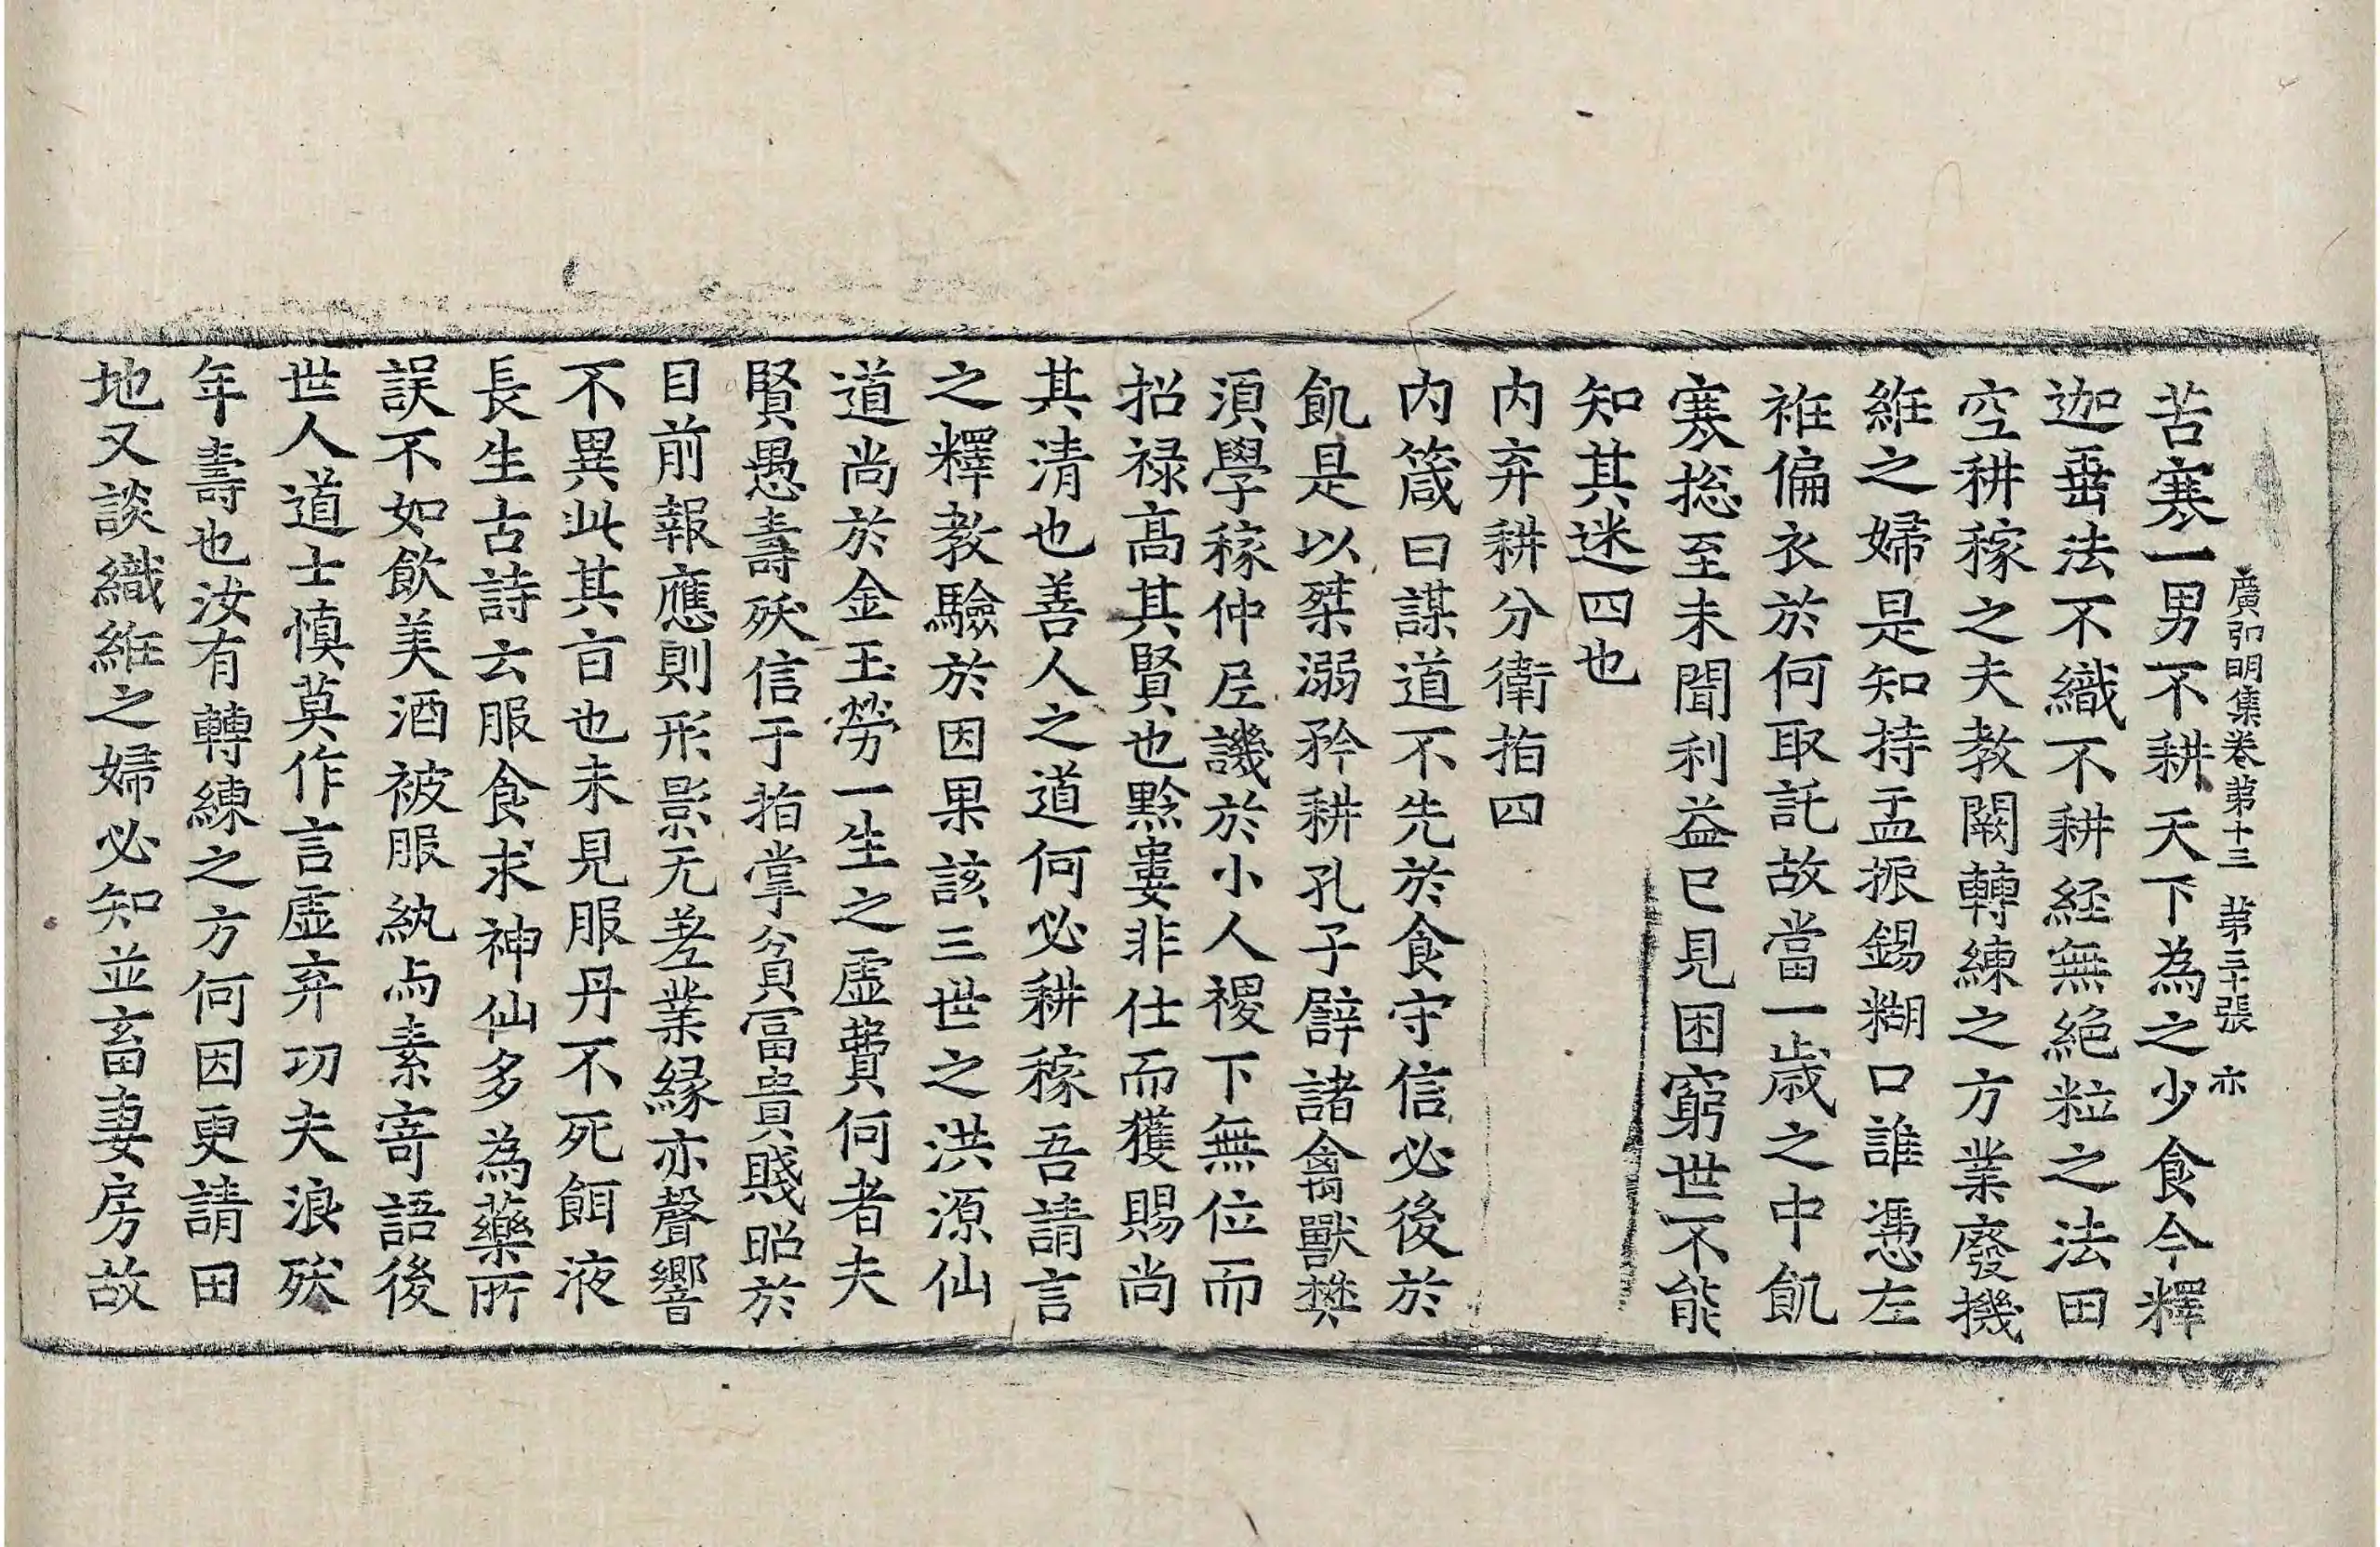 廣弘明集卷第十三 第三十張 亦
苦寒一男不耕天下為之少食今釋
迦垂法不織不耕経無絶粒之法田
空耕稼之夫教闕轉練之方業廢機
維之婦是知持盂振錫糊口誰憑左
袵偏衣於何取託故當一歳之中飢
寒捴至未聞利益已見困窮世不能
知其迷四也
内弃耕分衛指四
内箴曰謀道不先於食守信必後於
飢是以桀溺矜耕孔子譬諸禽獸樊
湏學稼仲尼譏於小人稷下無位而
招禄高其賢也黔婁非仕而獲賜尚
其清也善人之道何必耕稼吾請言
之釋教驗於因果該三世之洪源仙
道尚於金玉勞一生之虛費何者夫
賢愚壽殀信于指掌貧冨貴賤昭於
目前報應則形影无差業緣亦聲響
不異此其旨也未見服丹不死餌液
長生古詩云服食求神仙多為藥所
誤不如飲美酒被服紈与素寄語後
世人道士慎莫作言虛弃功夫浪殀
年壽也汝有轉練之方何因更請田
地又談織維之婦必知並畜妻房故